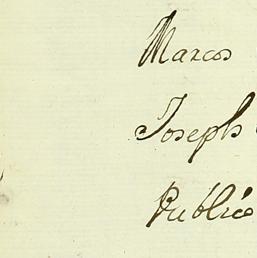 Marcos
Joseph
Publico